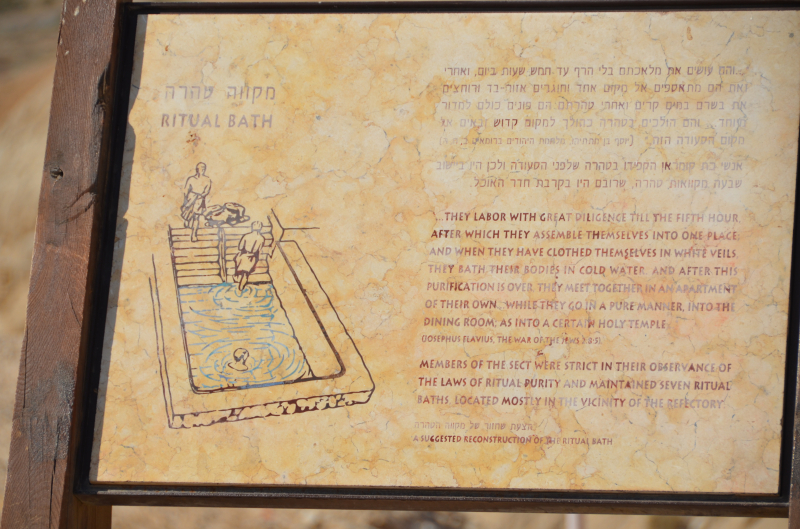 מקווה טהרה
RITUAL BATH
...והם עושים את מלאכתם בלי הרף עד חמש שעות ביום, ואחרי
זאת הם מתאספים אל מקום אחד וחוגרים אזורי-בד ורוחצים
את בשרם במים קרים ואחרי טהרתם הם פונים כולם לחדר
מיוחד... והם הולכים בטהרה כהולך למקום קדוש
(יוסף בן מתתיהו, מלחמת היהודים ברומאים
אנשי כת הקפידו בטהרה שלפני הסעודה ולכן היו
שבעה מקוואות טהרה, שרובם היו בקרבת חדר האוכל.
...THEY LABOR WITH GREAT DILIGENCE TILL THE FIFTH HOUR,
AFTER WHICH THEY ASSEMBLE THEMSELVES INTO ONE PLACE,
AND WHEN THEY HAVE CLOTHED THEMSELVES IN WHITE VEILS,
THEY BATH THEIR BODIES IN COLD WATER. AND AFTER THIS
PURIFICATION IS OVER, THEY MEET TOGETHER IN AN APARTMENT
OF THEIR OWN... WHILE THEY GO IN A PURE MANNER, INTO THE
DINING ROOM, AS INTO A CERTAIN HOLY TEMPLE
(IOSEPHUS FLAVIUS, THE WAR OF THE JEWS 2:8:5).
MEMBERS OF THE SECT WERE STRICT IN THEIR OBSERVANCE OF
THE LAWS OF RITUAL PURITY AND MAINTAINED SEVEN RITUAL
BATHS, LOCATED MOSTLY IN THE VICINITY OF THE REFECTORY
הצעת שחזור של מקווה הטהרה
A SUGGESTED RECONSTRUCTION OF THE RITUAL BATH